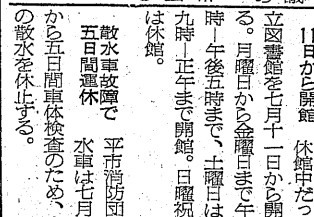 11日から開館
休館中だっ
立図書館を七月十一日から開
る。月曜日から金曜日まで午
時―午後五時まで、土曜日は
九時―正午まで開館。日曜祝
は休館。
散水車故障で
五日間運休
平市消防団
水車は七月
から五日間車体検査のため、
の散水を休止する。